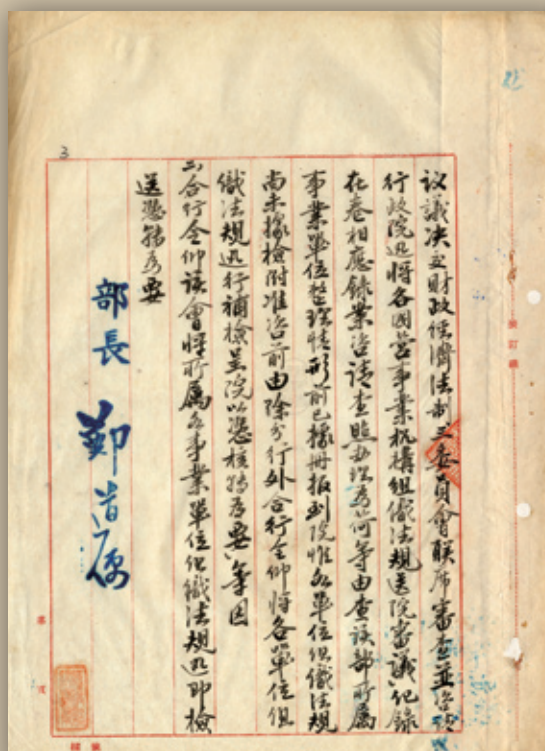 議議決交財政經濟法制三委員會聯席審查並咨請
行政院迅將各國營事業机構組織法規送院審議紀錄
在卷相應錄案咨請查照辦理為荷等由查該部所屬
事業單位整理情形前已據冊報到院惟各單位組織法規
尚未據檢附准咨前由除分行外合行令仰將各單位組
織法規迅行補檢呈院以憑核轉為要等因
合行令仰該會將所屬各事業單位組織法規迅即檢
送憑轉為要
部長 鄭道儒
裝訂線
第
頁